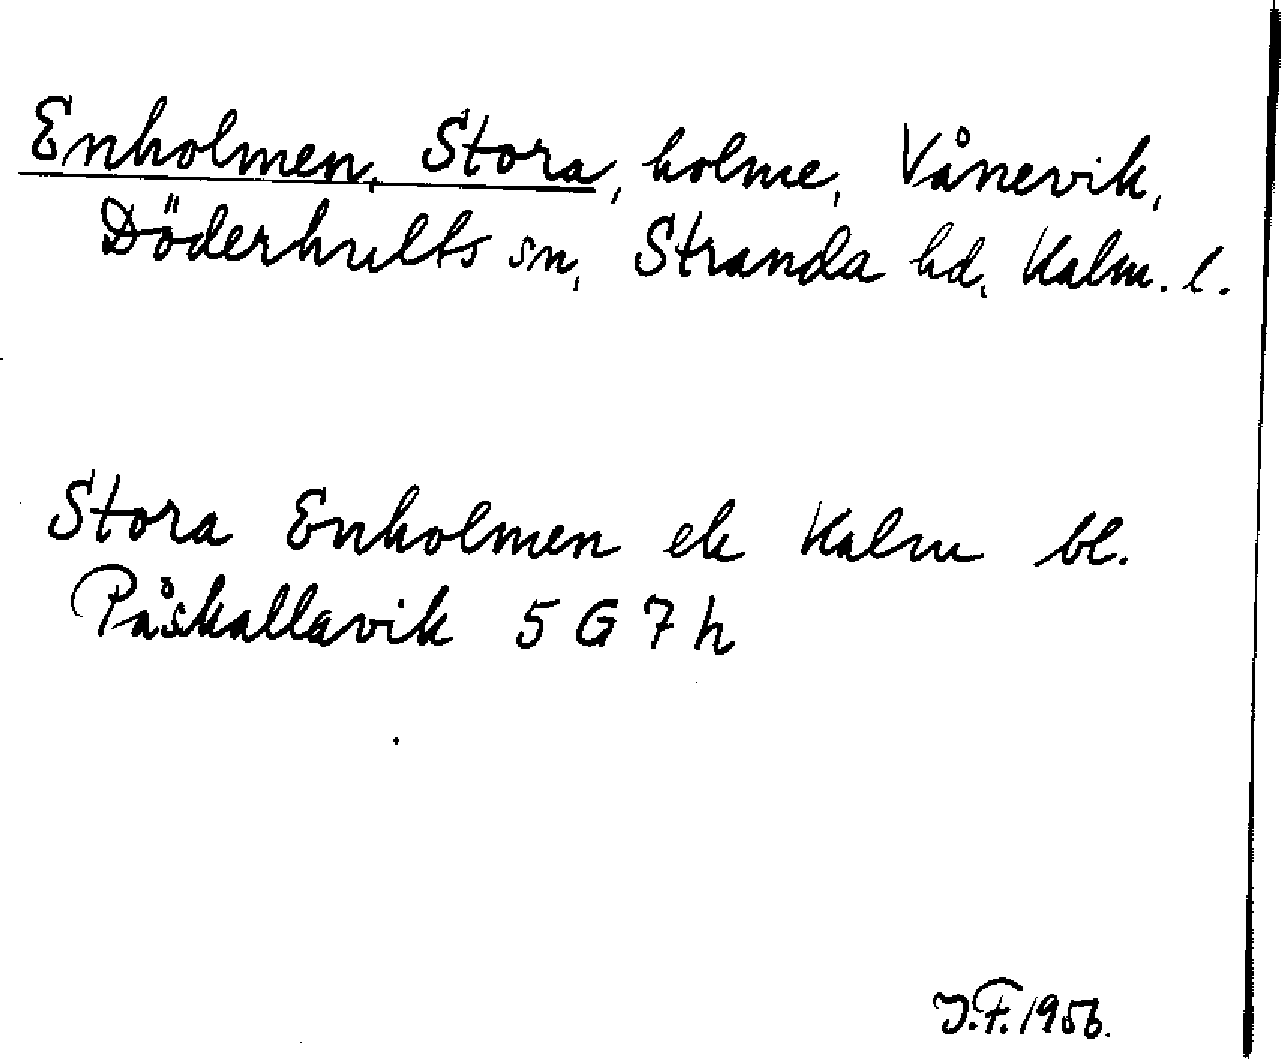 Enholmen, Stora, holme, Vånevik,
Döderhults sn, Stranda hd, Kalm. l.
Stora Enholmen ek Kalm bl.
Påskallavik 5 G 7 h
J.F. 1956.